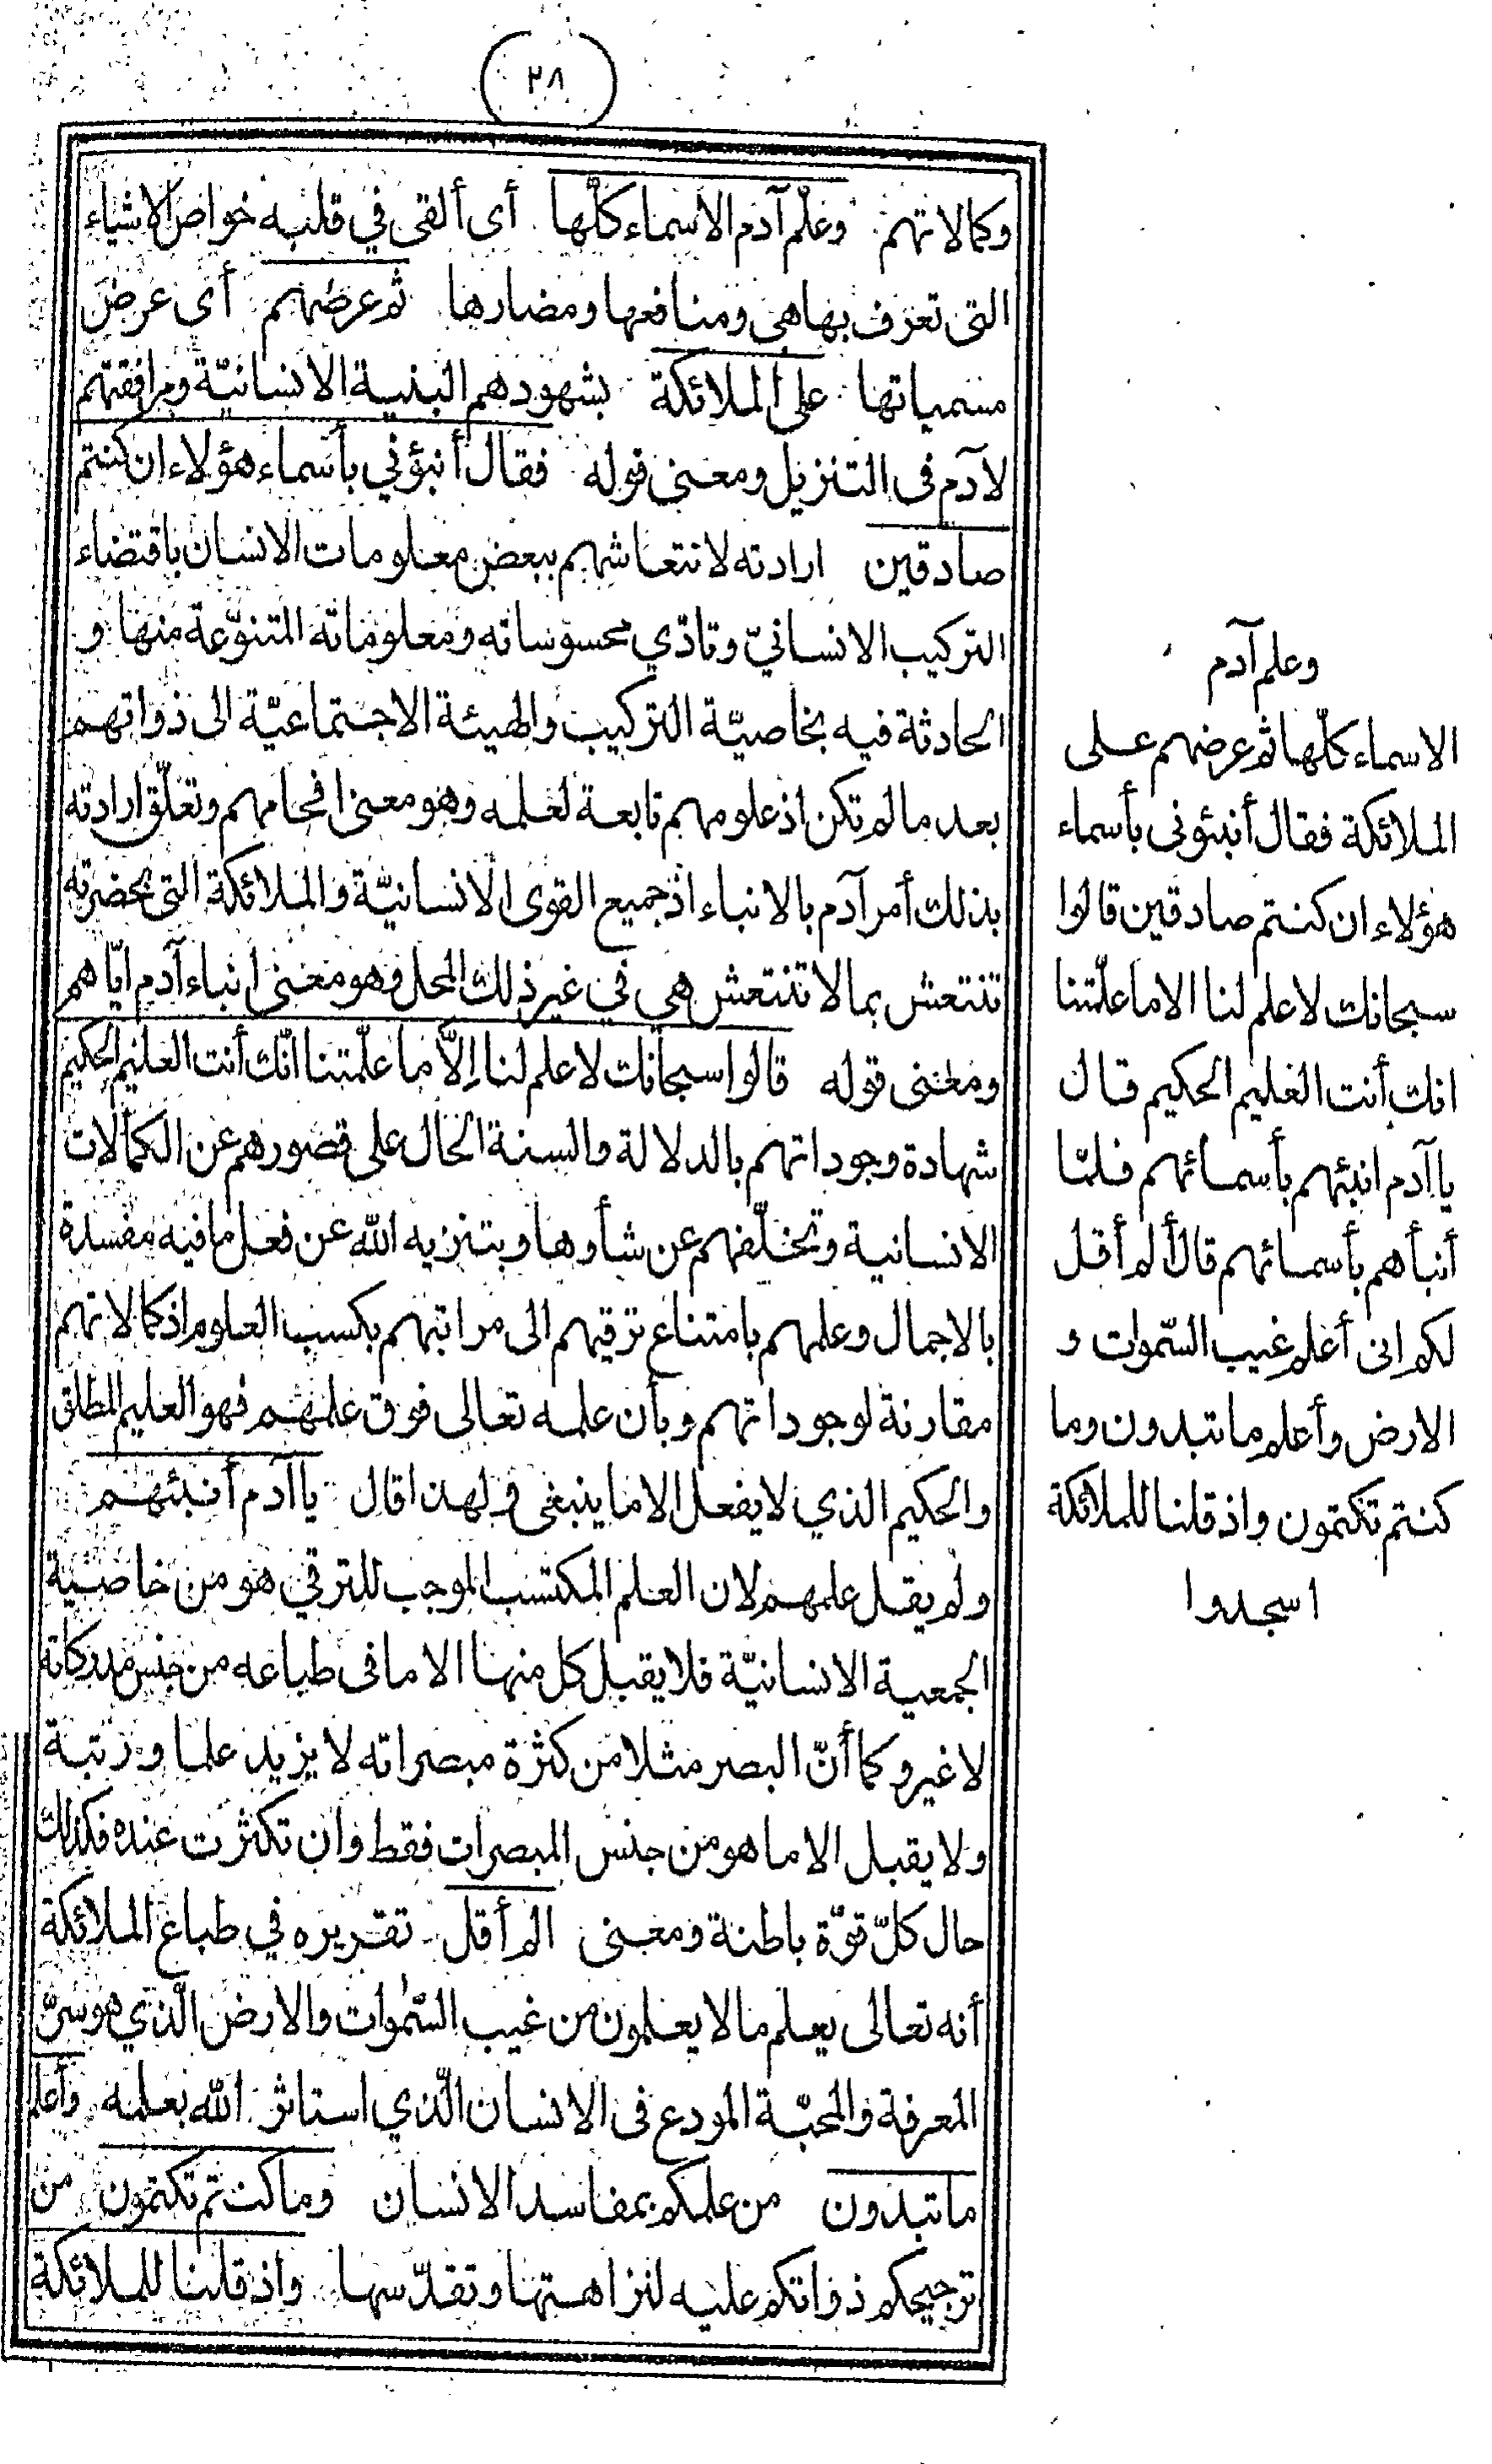 ٢٨
وكمالاتهم وعلّم آدم الاسماء كلّها أى ألقى في قلبه خواص الاشياء
التى تعرف بها هى ومنافعها ومضارها ثم عرضهم أى عرض
مسمياتها على الملائكة بشهودهم البنية الانسانيّة ومرافقتهم
لآدم فى التنزيل ومعنى قوله فقال أنبؤني بأسماء هؤلاء ان كنتم
صادقين ارادته لانتعاشهم ببعض معلومات الانسان باقتضاء
التركيب الانسانيّ وتادّي محسوساته ومعلوماته المتنوّعة منها و
الحادثة فيه بخاصيّة التركيب والهيئة الاجتماعيّة الى ذواتهم
بعد ما لم تكن اذ علومهم تابعة لعلمه وهو معنى افحامهم وتعلّق ارادته
بذلك أمر آدم بالانباء اذ جميع القوى الانسانيّة والملائكة التى بحضرته
تنتعش بما لا تنتعش هي في غير ذلك المحل فهو معنى انباء آدم ايّاهم
ومعنى قوله قالوا سبحانك لا علم لنا إلاّ ما علّمتنا انّك أنت العليم الحكيم
شهادة وجوداتهم بالدلالة والسنة الحال على قصورهم عن الكمالات
الانسانية وتخلّفهم عن شأوها وبتنزيه الله عن فعل ما فيه مفسدة
بالاجمال وعلمهم بامتناع ترقيهم الى مراتبهم بكسب العلوم اذ كمالاتهم
مقارنة لوجوداتهم وبأن علمه تعالى فوق علمهم فهو العليم المطلق
والحكيم الذي لا يفعل الا ما ينبغى ولهذا قال يا آدم أنبئهم
ولم يقل علمهم لان العلم المكتسب الموجب للترقي هو من خاصيّة
الجمعية الانسانيّة فلا يقبل كل منها الا ما فى طباعه من جنس مدركاته
لا غير وكما أنّ البصر مثلا من كثرة مبصراته لا يزيد علما ورتبة
ولا يقبل الا ما هو من جنس المبصرات فقط وان تكثرت عنده فكذلك
حال كلّ قوّة باطنة ومعنى الم أقل تقريره في طباع الملائكة
أنه تعالى يعلم ما لا يعلمون من غيب السّموات والارض الّذي هو سرّ
المعرفة والمحبّة المودع فى الانسان الّذي استاثر الله بعلمه وأعلم
ما تبدون من علمكم بمفاسد الانسان وما كنتم تكتمون من
ترجيحكم ذواتكم عليه لنزاهتها وتقدّسها واذ قلنا للملائكة
وعلم آدم
الاسماء كلّها ثم عرضهم على
الملائكة فقال أنبئونى بأسماء
هؤلاء ان كنتم صادقين قالوا
سبحانك لا علم لنا الا ما علّمتنا
انك أنت العليم الحكيم قال
يا آدم انبئهم بأسمائهم فلمّا
أنبأهم بأسمائهم قال ألم أقل
لكم انى أعلم غيب السّموات و
الارض وأعلم ما تبدون وما
كنتم تكتمون واذ قلنا للملائكة
اسجدوا